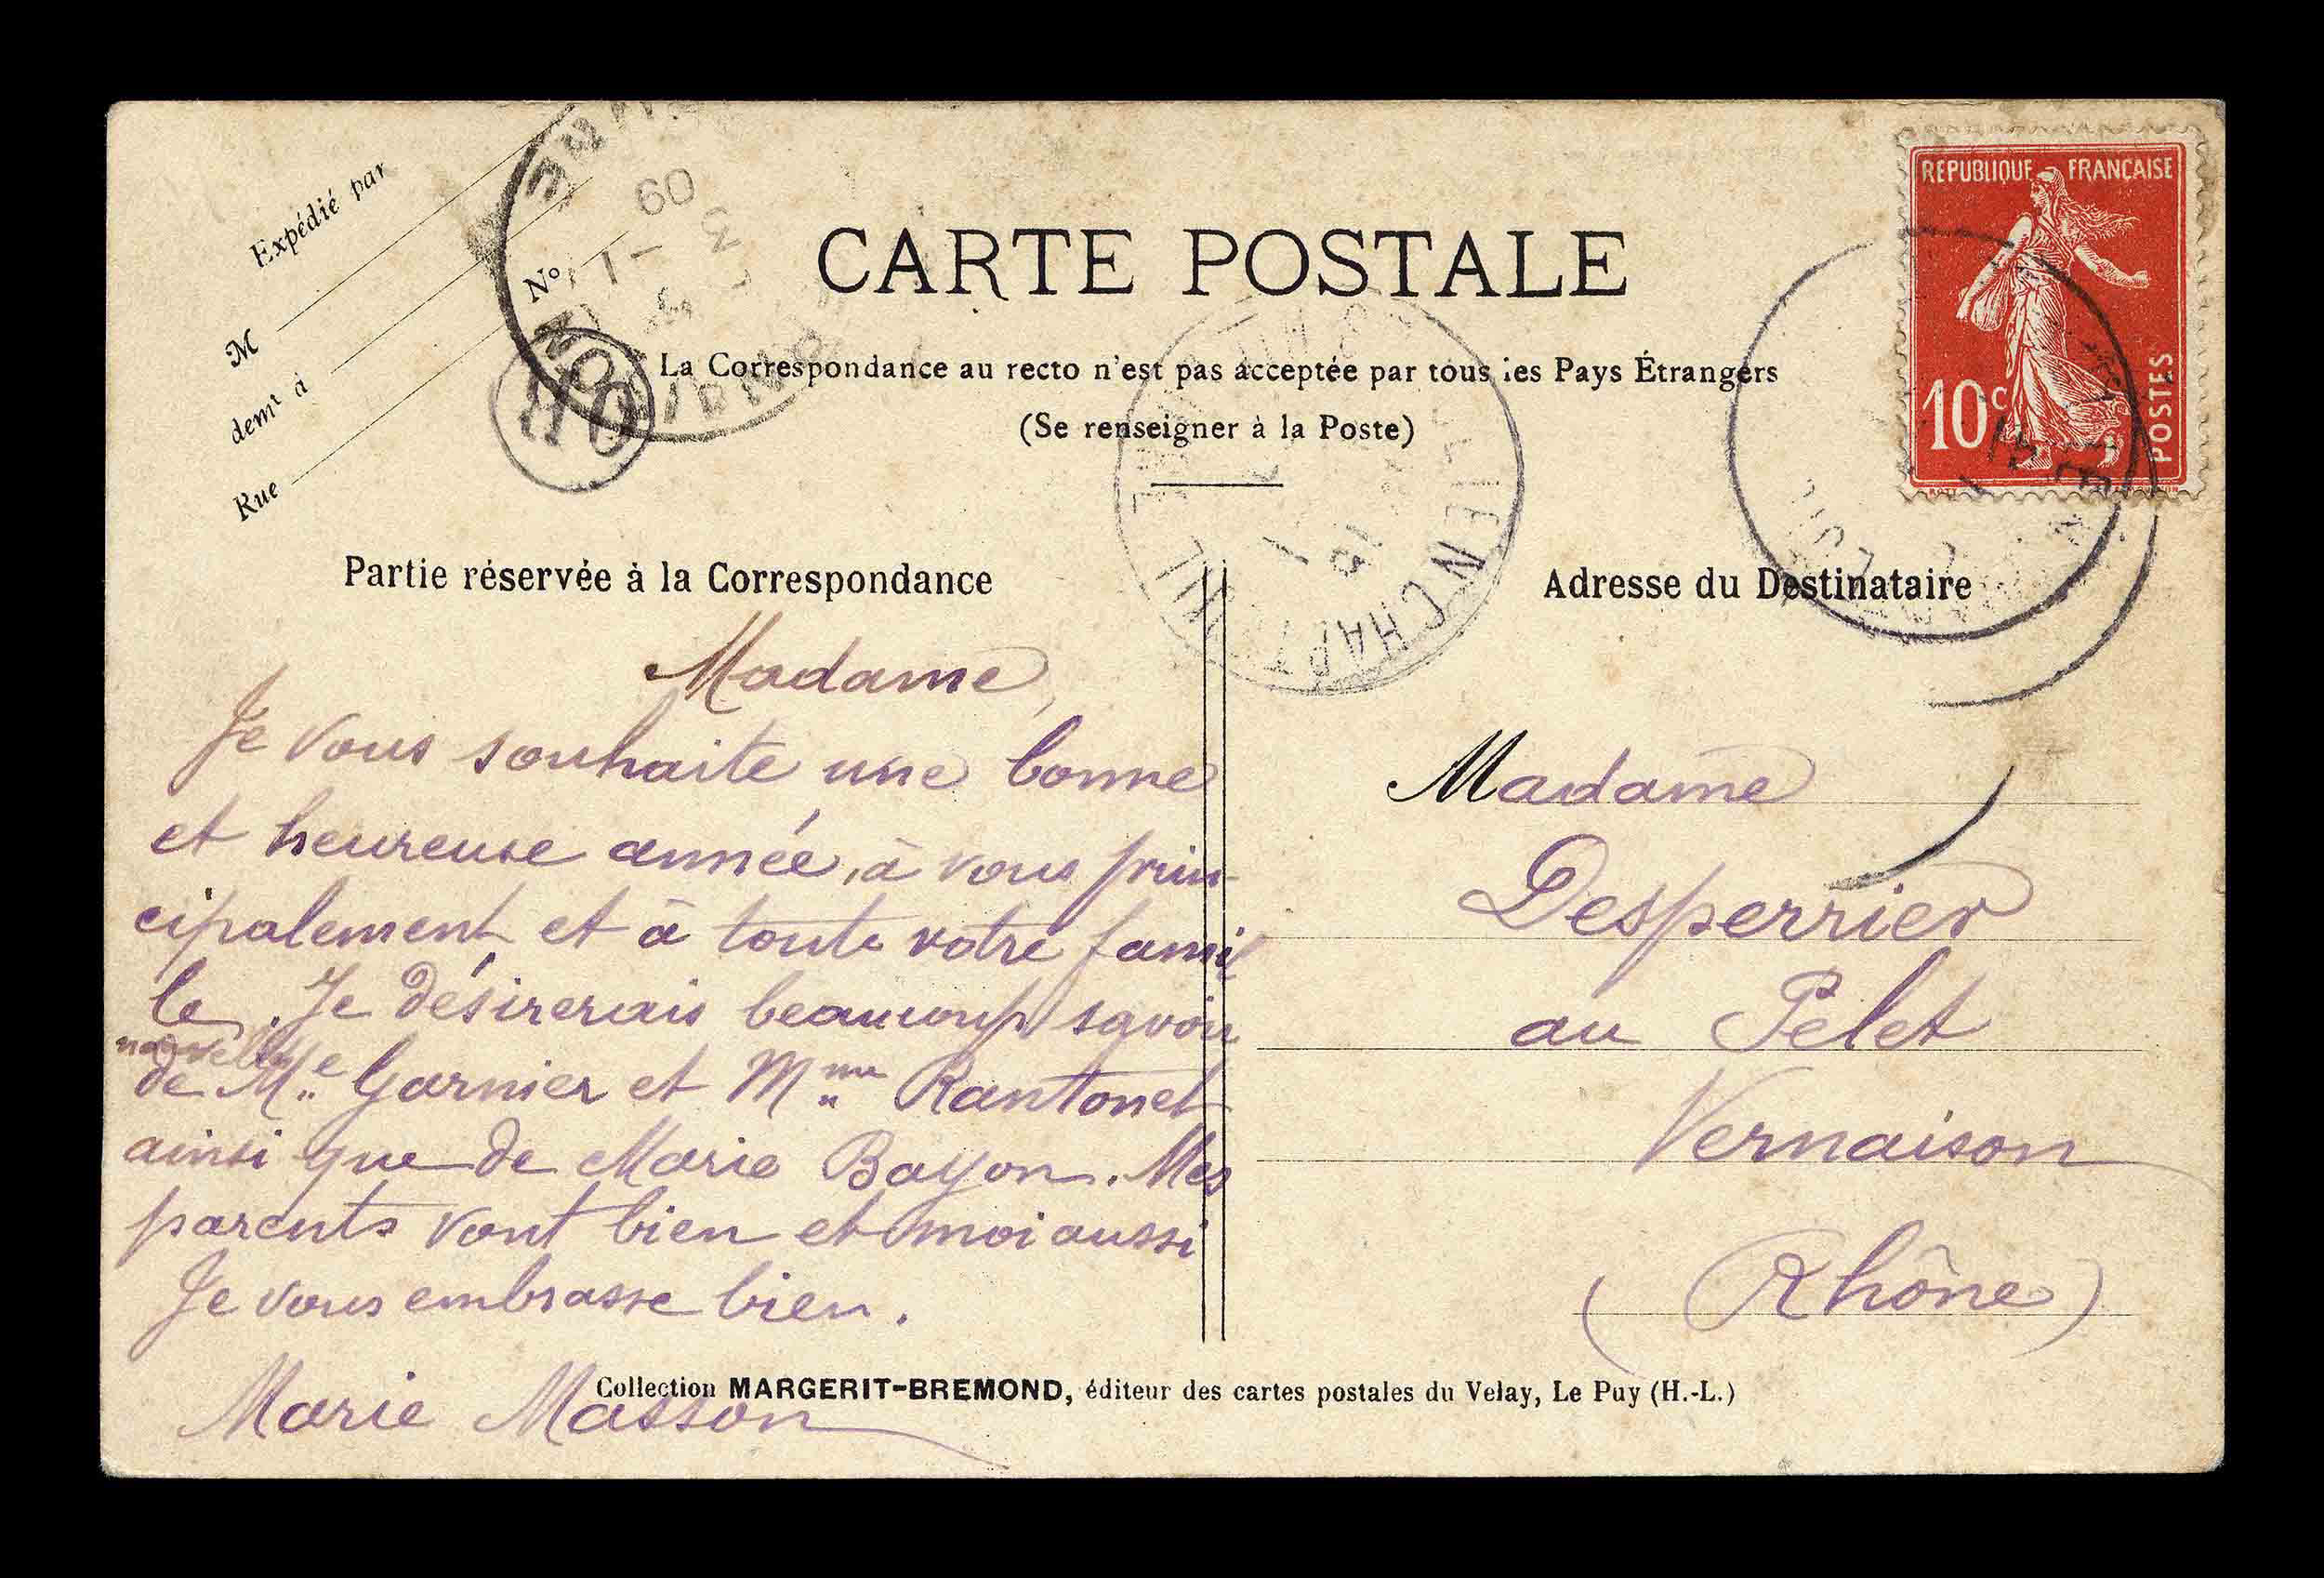 Expédié par
M
demt à
Rue
No
09
CARTE POSTALE
RÉPUBLIQUE FRANÇAISE
10c
POSTES
La Correspondance au recto n'est pas acceptée par tous les Pays Étrangers
(Se renseigner à la Poste)
Partie réservée à la Correspondance
Madame,
Je vous souhaite une bonne
et heureuse année, à vous prin-
cipalement et à toute votre famil
le. Je désirerais beaucoup savoir
nouvelle
de Me Garnier et Mme Rantonet
ainsi que de Marie Bayon. Mes
parents vont bien et moi aussi
Je vous embrasse bien.
Marie Masson
Adresse du Destinataire
Madame
Desperrier
au Pelet
Vernaison
(Rhône)
Collection MARGERIT-BREMOND, éditeur des cartes postales du Velay, Le Puy (H.-L.)